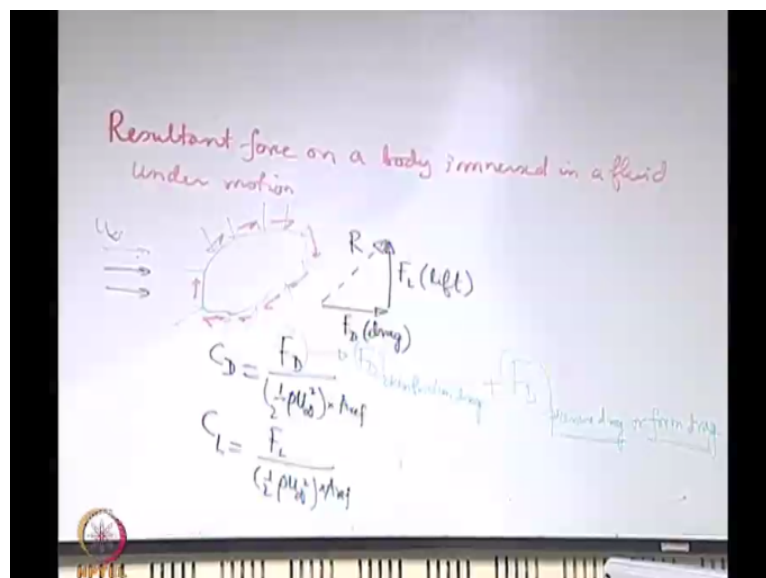 Resultant force on a body immersed in a fluid
under motion
U∞
R
F_L (lift)
F_D (drag)
C_D = F_D / (½ρU∞²) × A_ref
(F_D) skin friction drag + (F_D) pressure drag or form drag
C_L = F_L / (½ρU∞²) × A_ref
NPTEL